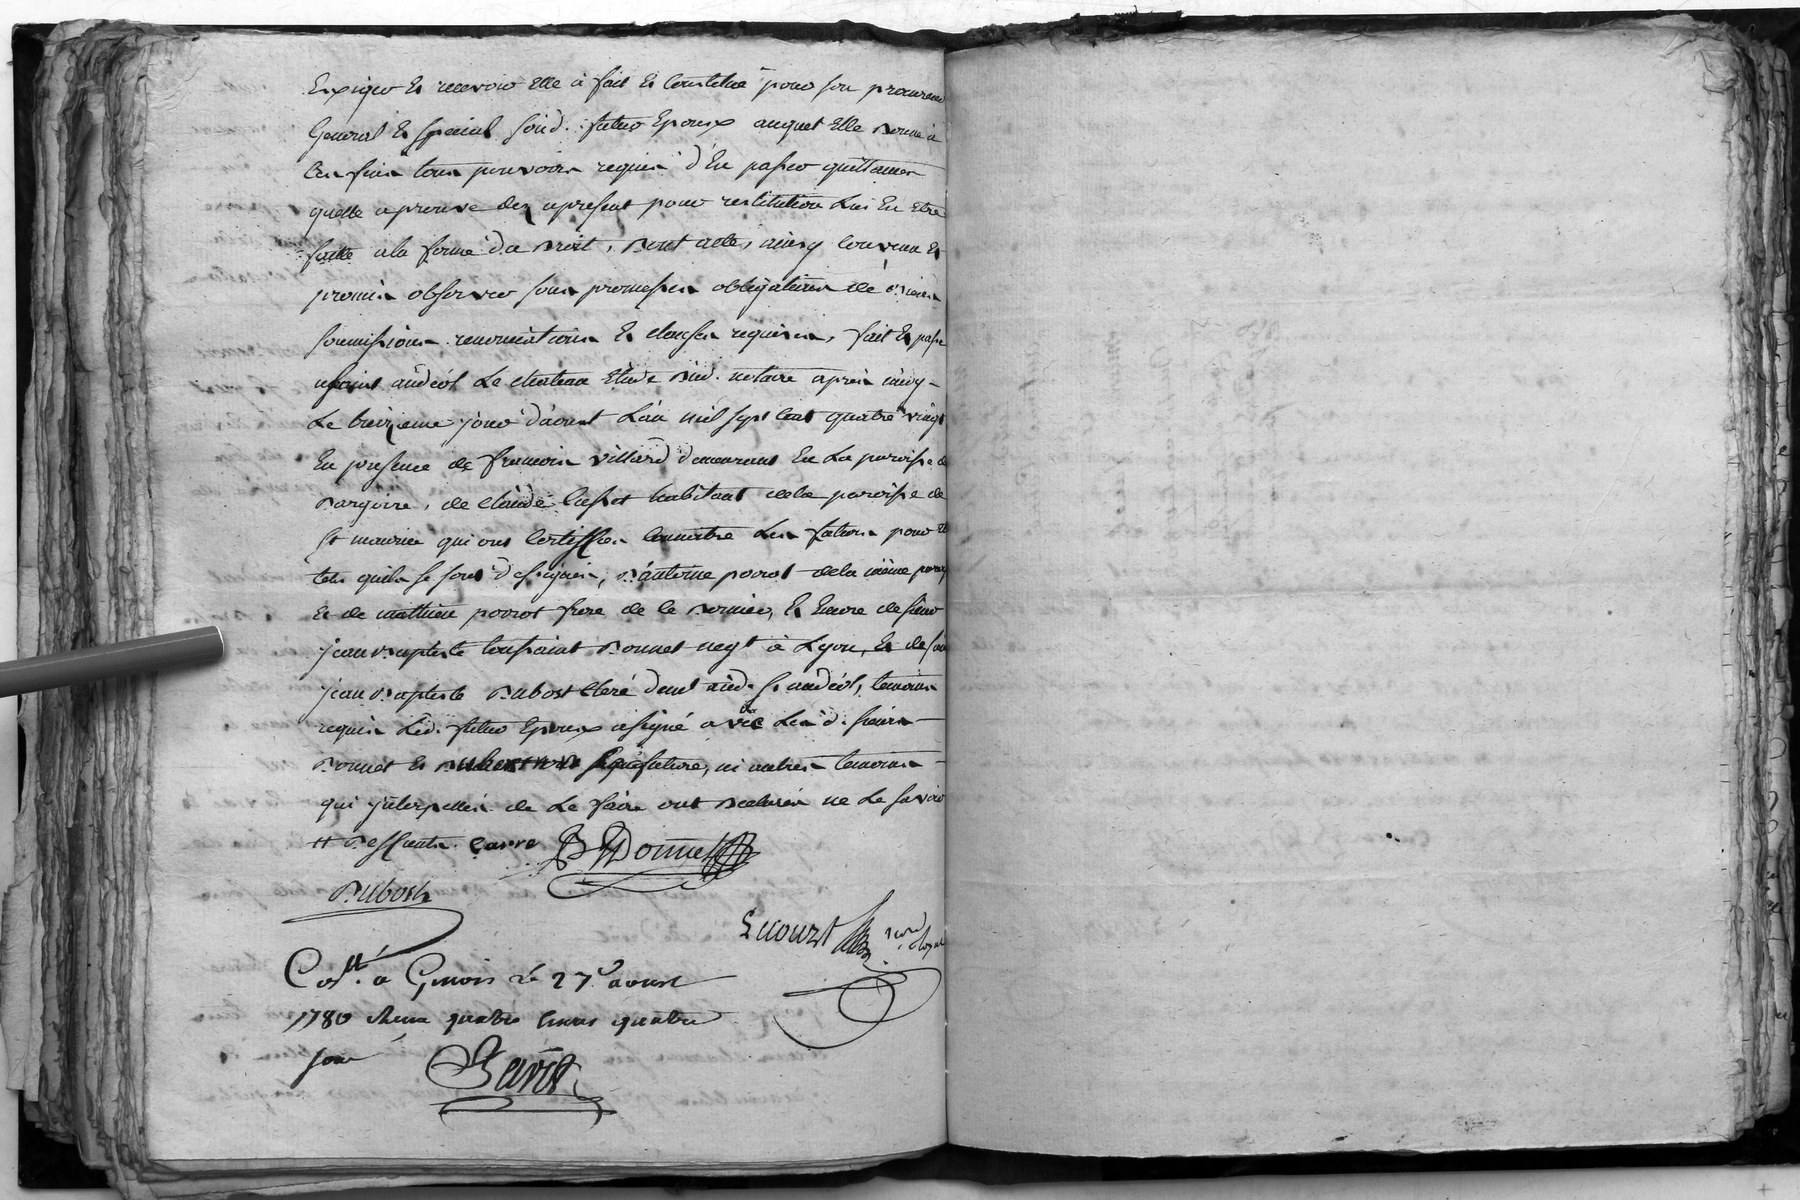 Exiger et recevoir elle à fait et constitué pour son procureur
General et special soud. futur Epoux auquel Elle donne a
Ces fins tous pouvoirs requis d'En passer quittances
quelle aprouve dez apresent pour restitution Lui En etre
faitte ala forme du droit, dont acte, ainsy convenu et
promis observer sous promesses obligations de biens
soumissions renonciations et clauses requises, fait et passé
a saint andéol Le chateau Etude dud. notaire après midy
Le treizieme jour d'aoust L'an mil sept cent quatre vingt
En presence de francois villard demeurant En La paroisse de
dargoire, de claude habitant dela paroisse de
st maurice qui ont certiffies connoitre Les futurs pour
tels quils se sont désignés, d'antoine poirot dela même paroisse
et de mathieu poirot frere de le dernier, et Encore de sieur
jean baptiste toussaint Bonnet negt à Lyon, et de sieur
jean Baptiste Dubost clerc demt aud. st andéol, temoins
requis Led. futur Epoux a signé avec Les d. sieurs
Bonnet et Dubost non future, ni autres temoins
qui jnterpellés de Le faire ont declarés ne Le savoir
B Bonnet
Dubost
Lecourt
Cot. a Givors Le 27 aoust
1780 Reçu quatre livres quatre
sous